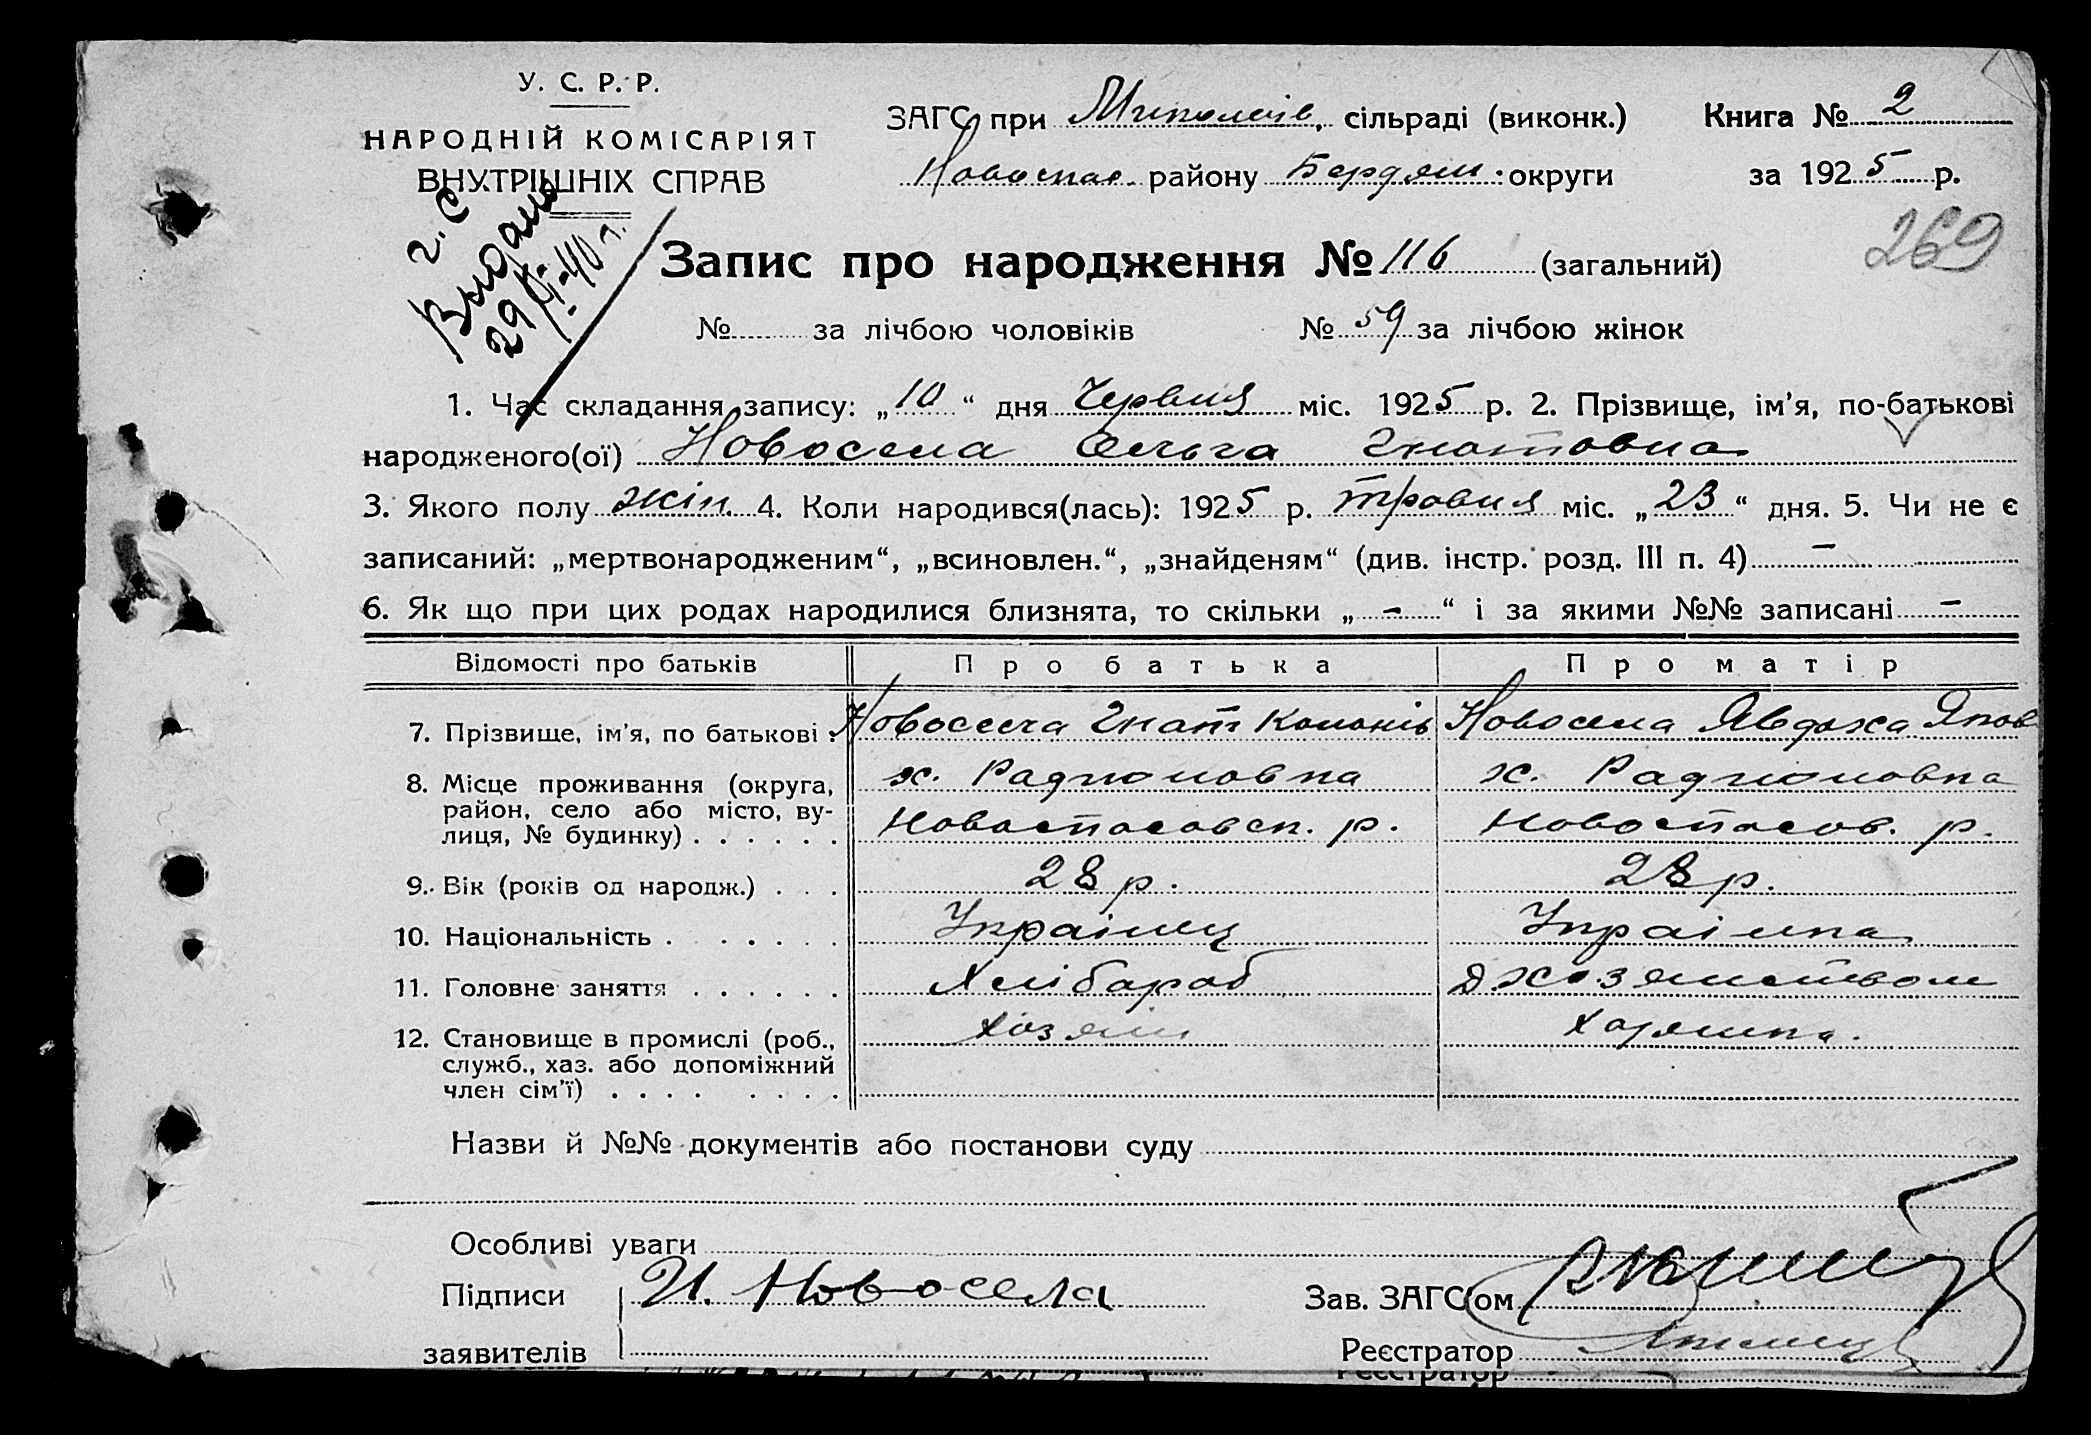 У. С. Р. Р.
НАРОДНІЙ КОМІСАРІЯТ
ВНУТРІШНІХ СПРАВ
ЗАГС при Миколаїв. сільраді (виконк.) Книга № 2
Новоспас. району Бердян. округи за 1925 р.
269
Видано
29/XI-40 г.
Запис про народження № 116 (загальний)
№ за лічбою чоловіків № 59 за лічбою жінок
1. Час складання запису: „10“ дня Червня міс. 1925 р. 2. Прізвище, ім'я, по-батькові
народженого(ої) Новосела Ольга Гнатовна
3. Якого полу жін. 4. Коли народився(лась): 1925 р. травня міс. „23“ дня. 5. Чи не є
записаний: „мертвонародженим“, „всиновлен.“, „знайденям“ (див. інстр. розд. III п. 4) –
6. Як що при цих родах народилися близнята, то скільки „ - “ і за якими №№ записані –
Відомості про батьків Про батька Про матір
7. Прізвище, ім'я, по батькові : Новосела Гнат Новосела Явдоха
8. Місце проживання (округа, х. Радионовка х. Радионовка
район, село або місто, ву-
лиця, № будинку) . . . . . . Новоспасовск. р. Новоспасов. р.
9. Вік (років од народж.) . . . 28 р. 28 р.
10. Національність . . . . . . Україниц Українка
11. Головне заняття . . . . . . Хлібароб
12. Становище в промислі (роб., хозяин
служб., хаз. або допоміжний
член сім'ї) . . . . . . . .
Назви й №№ документів або постанови суду
Особливі уваги
Підписи И. Новосела Зав. ЗАГС'ом
заявителів Реєстратор
Реєстратор